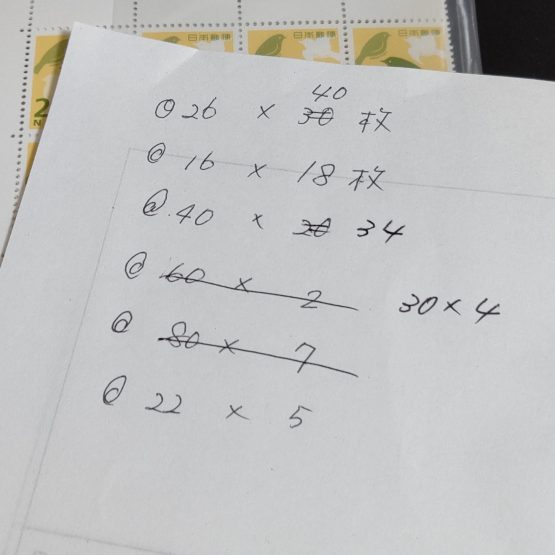 日本郵便 日本郵便 日本郵便
2
N
40
@ 26 × 30 枚
@ 16 × 18 枚
@ 40 × 20 34
@ 60 × 2 30 × 4
@ 80 × 7
@ 22 × 5